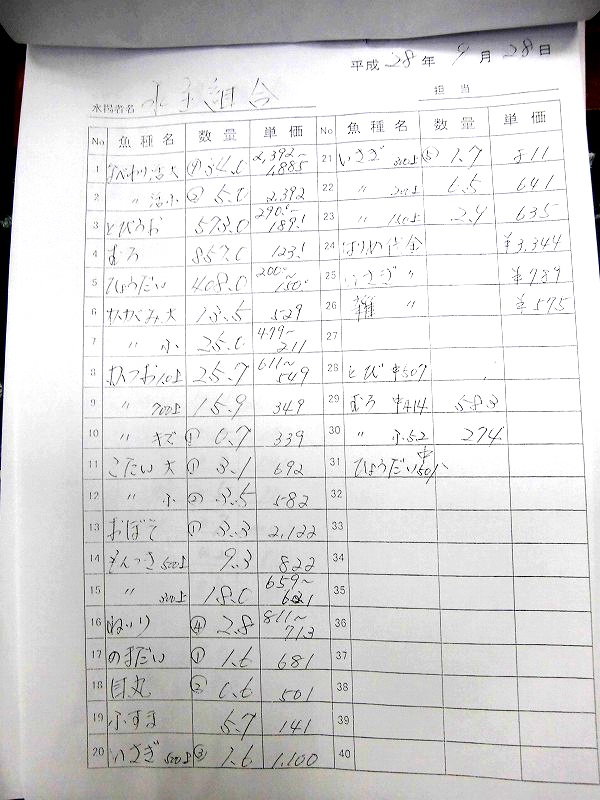 平成 28 年 9 月 28 日
水揚者名 水主組合
担当
No 魚種名 数量 単価
1 大 ④ 34.0 2,392〜1,885
2 〃 活小 ② 5.0 2,392
3 とびうお 573.0 290.〜189.
4 むろ 857.0 123.
5 ひょうだい 408.0 200〜150
6 大 13.5 529
7 〃 小 25.0 499〜211
8 かつお 25.7 611〜549
9 〃 700上 15.9 349
10 〃 キズ ① 0.7 339
11 こだい 大 ① 3.1 692
12 〃 小 ② 3.5 582
13 おぼそ ① 3.3 2,122
14 ぎんつき 500上 9.3 822
15 〃 300上 18.0 659〜621
16 ④ 2.8 811〜713
17 のまだい ① 1.6 681
18 目丸 ② 0.6 501
19 ふすま 5.7 141
20 いさぎ 500上 ③ 1.6 1,100
No 魚種名 数量 単価
21 いさぎ 300上 ⑤ 1.7 811
22 〃 200上 641
23 〃 2.4 635
24 代金 ¥3,344
25 いさぎ 〃 ¥789
26 雑 〃 ¥575
27
28 とび 中507
29 むろ 中414 583
30 〃 小52 274
31 ひょうだい 中
32
33
34
35
36
37
38
39
40